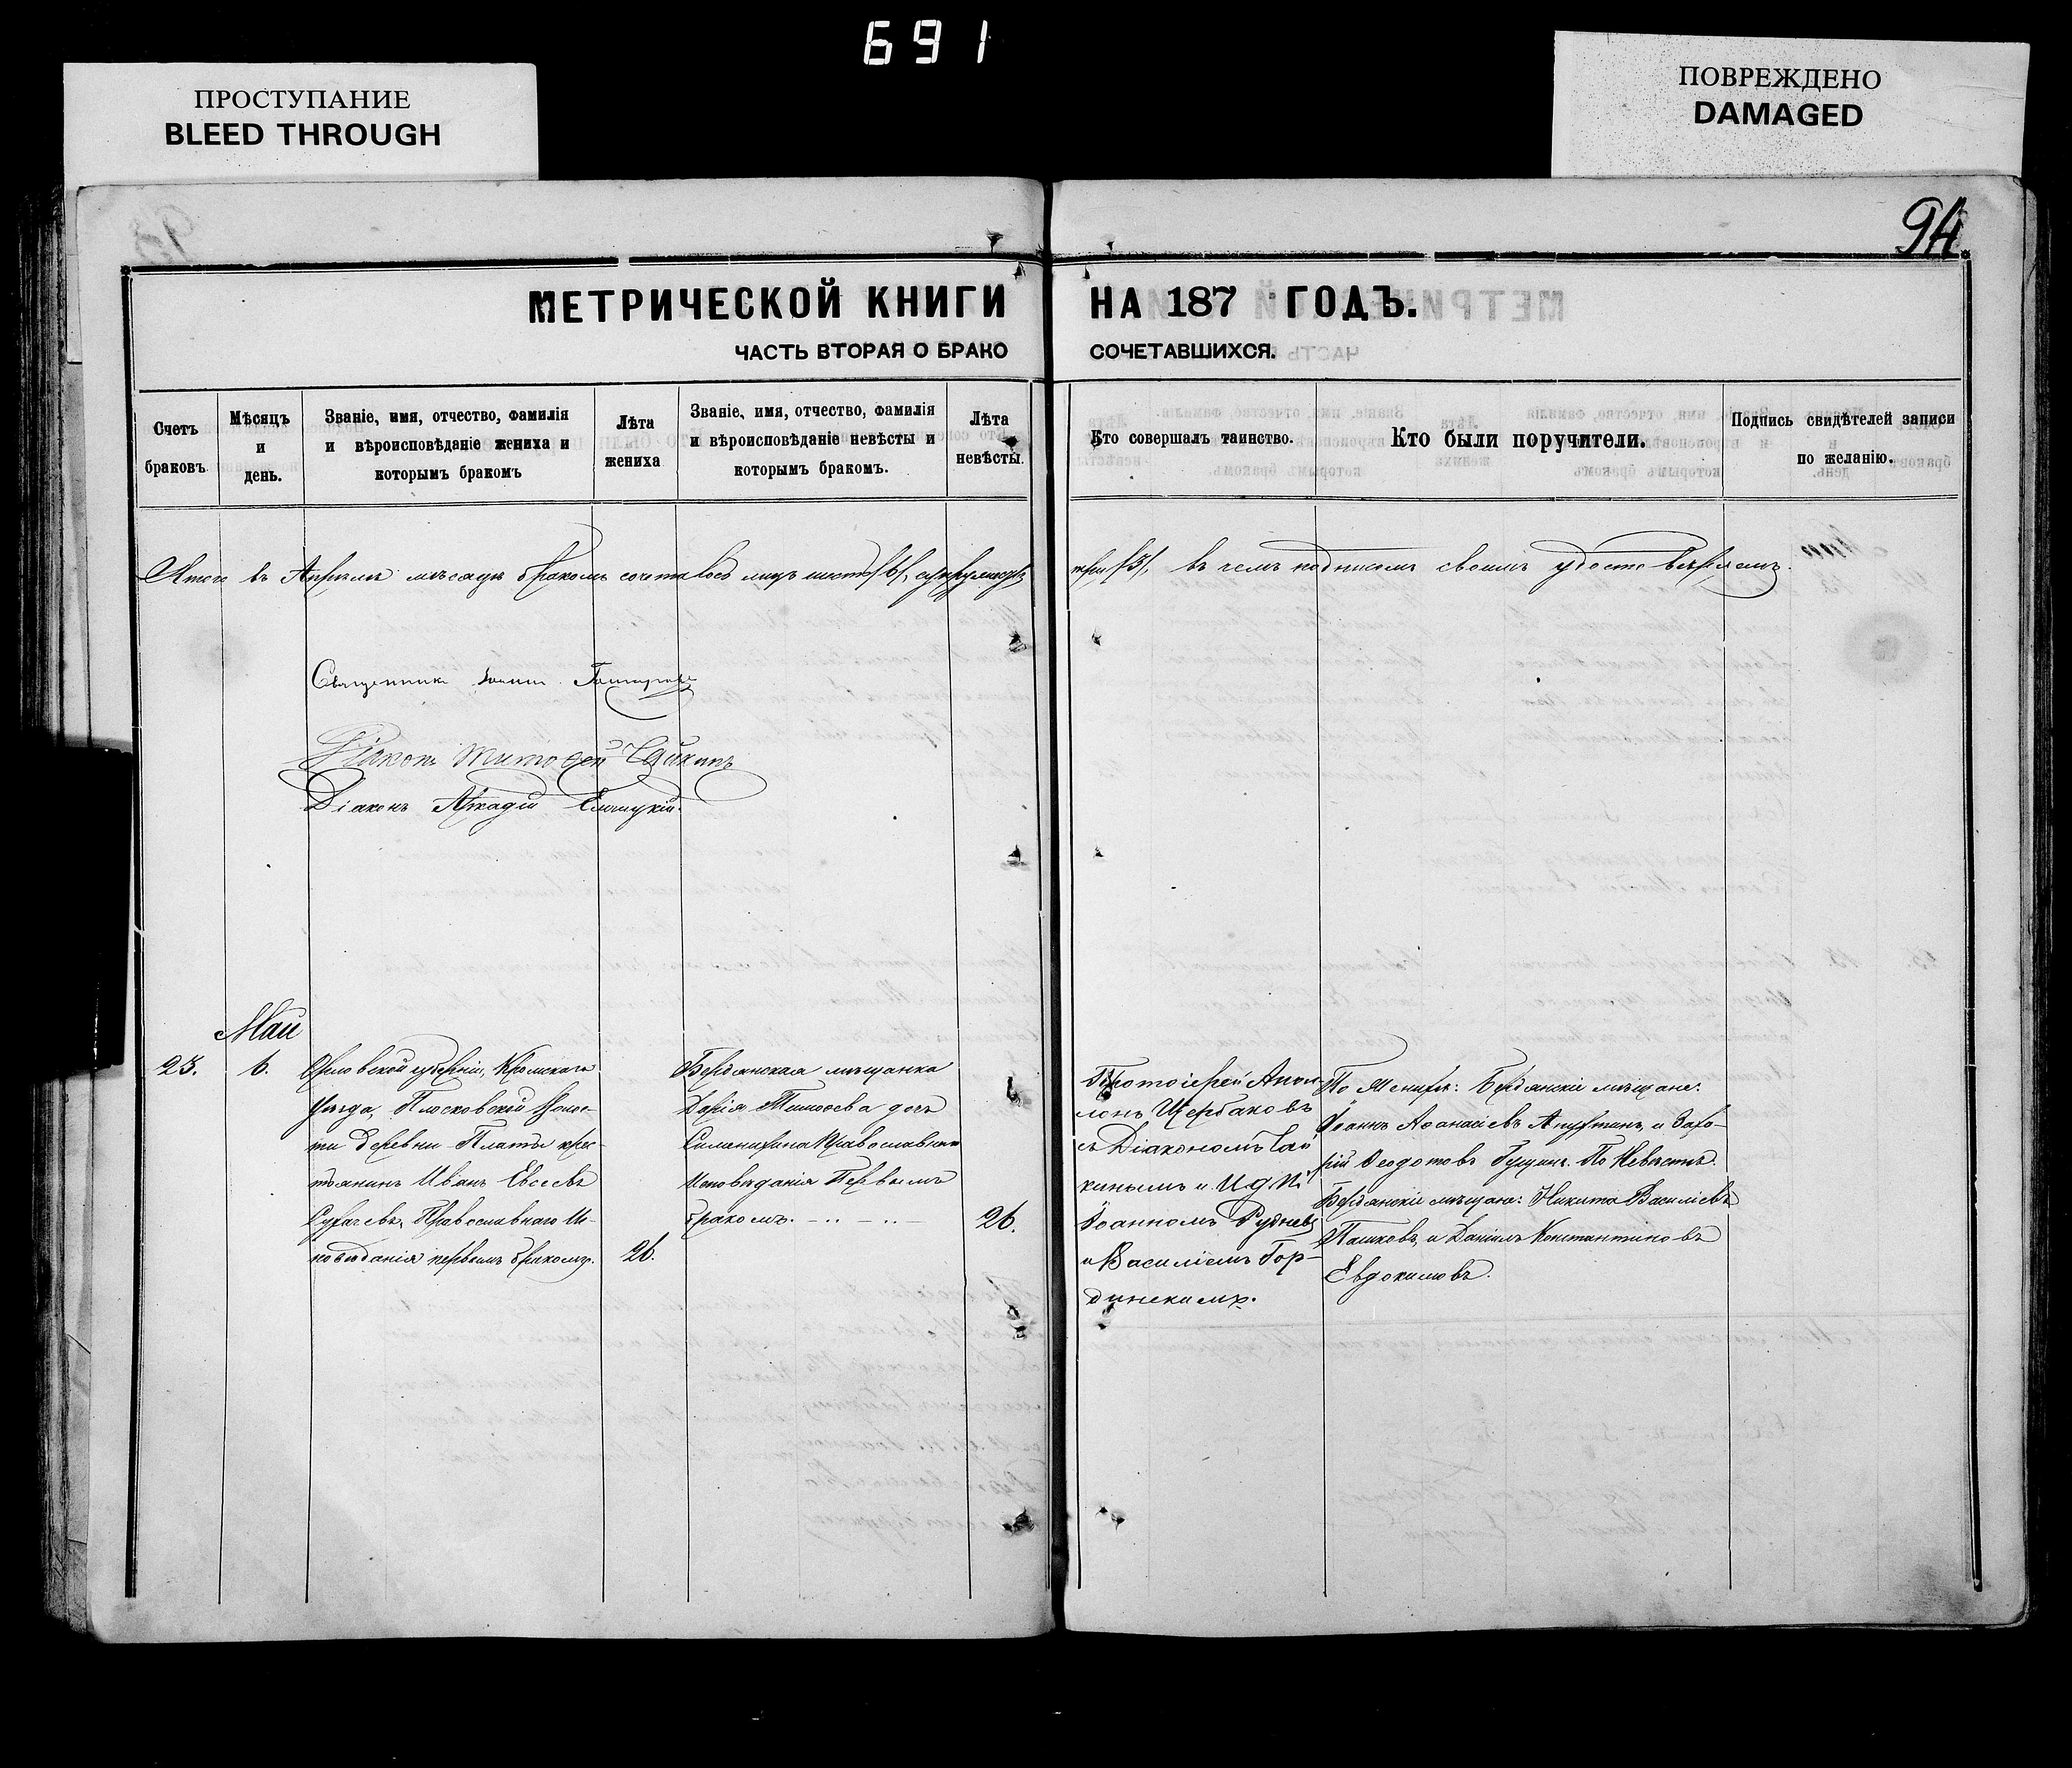 691
ПРОСТУПАНИЕ
BLEED THROUGH
ПОВРЕЖДЕНО
DAMAGED
94
МЕТРИЧЕСКОЙ КНИГИ НА 187 ГОДЪ.
ЧАСТЬ ВТОРАЯ О БРАКОСОЧЕТАВШИХСЯ.
Счетъ
браковъ
Мѣсяцъ
и
день.
Званіе, имя, отчество, фамилія
и вѣроисповѣданіе жениха и
которымъ бракомъ
Лѣта
жениха
Званіе, имя, отчество, фамилія
и вѣроисповѣданіе невѣсты и
которымъ бракомъ.
Лѣта
невѣсты.
Кто совершалъ таинство.
Кто были поручители.
Подпись свидѣтелей записи
по желанію.
Итого въ Апрѣлѣ мѣсяцѣ бракомъ сочеталось лицъ шесть /6/, супружествъ три /3/, въ чемъ подписомъ своимъ удостовѣряемъ.
Священникъ Іоаннъ
Діаконъ Тимофей Чайкинъ
Діаконъ Аркадій
Май
23.
6.
Орловской губерніи, Кромскаго
Уѣзда, Плосковской Волос-
ти деревни Платы крес-
тьянинъ Иванъ Евсеевъ
Сухачевъ, Православнаго Ис-
повѣданія первымъ бракомъ.
26.
Бердянская мѣщанка
Дарія Тимофеева дочь
Симонихина Православнаго
Исповѣданія Первымъ
бракомъ.
26.
Протоіерей Апол-
лонъ Щербаковъ
съ Діакономъ Чай
кинымъ и И. д. П.
Іоанномъ Рудневъ
и Василіемъ Гор-
динскимъ.
По Женихѣ: Бердянскіе мѣщане:
Іоаннъ Аѳанасіевъ Апухтинъ, и Заха-
рій Ѳеодотовъ Гущинъ. По Невѣстѣ.
Бердянскіе мѣщане: Никита Василіевъ
Пашковъ, и Даніилъ Константиновъ
Евдокимовъ.